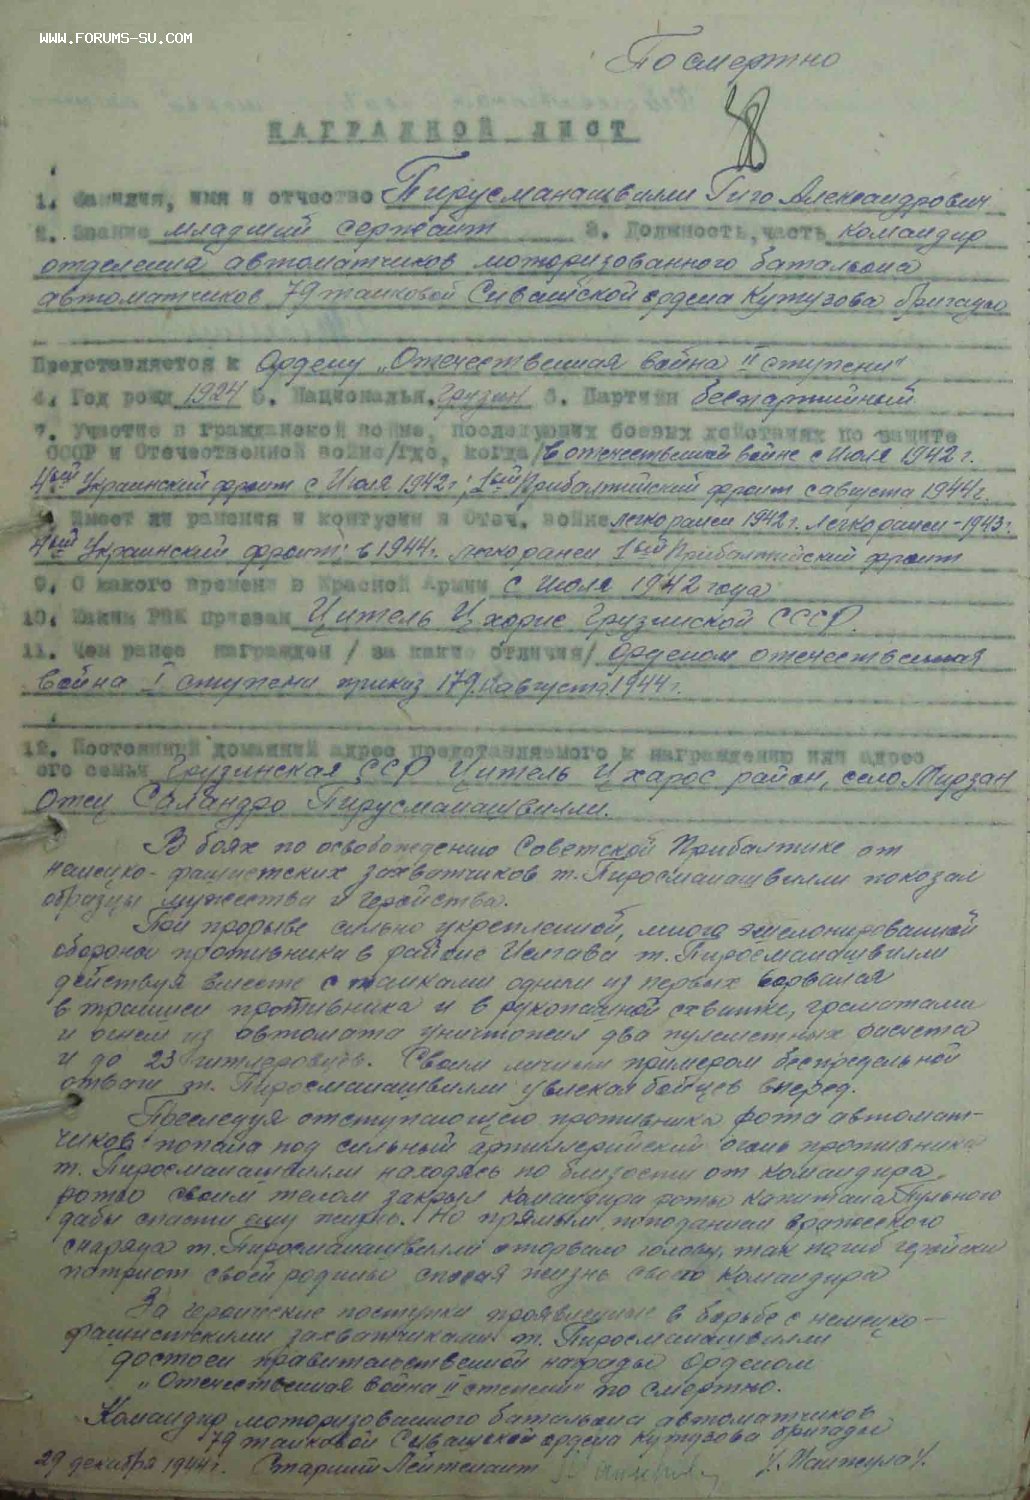 WWW.FORUMS-SU.COM
Посмертно
НАГРАДНОЙ ЛИСТ
1. Фамилия, имя и отчество Пирусманашвилли Гиго Александрович
2. Звание младший сержант 3. Должность, часть командир
отделения автоматчиков моторизованного батальона
автоматчиков 79 танковой Сивашской ордена Кутузова бригады
Представляется к Ордену „Отечественная война II ступени"
4. Год рожд 1924 5. Националън. грузин 6. Партийн беспартийный
7. Участие в гражданской войне, последующих боевых действиях по защите
СССР и Отечественной войне/где, когда/ в отечественной войне с Июля 1942 г.
4ый Украинский фронт с Июля 1942 г; 1ый Прибалтийский фронт с августа 1944 г.
Имеет ли ранения и контузии в Отеч. войне легко ранен 1942 г. легко ранен - 1943 г.
4ый Украинский фронт; в 1944 г. легко ранен 1ый Прибалтийский фронт
9. С какого времени в Красной Армии с июля 1942 года
10. Каким РВК призван Цители Цхорис Грузинской СССР.
11. Чем ранее награжден / за какие отличия/ Орденом отечественная
война I ступени приказ 179. августа 1944 г.
12. Постоянный домашний адрес представляемого к награждению или адрес
его семьи Грузинская ССР Цитель Цхарос район, село Мирзан
Отец Саландро Пирусманашвилли.
В боях по освобождению Советской Прибалтике от
немецко-фашистских захватчиков т. Пиросманашвилли показал
образцы мужества и геройства.
При прорыве сильно укрепленной, много эшелонированной
обороны противника в районе Иелгава т. Пиросманашвилли
действуя вместе с танками одним из первых ворвался
в траншеи противника и в рукопашной схватке, гранатами
и огнем из автомата уничтожил два пулеметных расчета
и до 23 гитлеровцев. Своим личным примером беспредельной
отваги т. Пиросманашвилли увлекал бойцов вперед.
Преследуя отступающего противника рота автомат-
чиков попала под сильный артиллерийский огонь противника
т. Пиросманашвилли находясь по близости от командира
роты своим телом закрыл командира роты капитана Пульного
дабы спасти ему жизнь. Но прямым попаданием вражеского
снаряда т. Пиросманашвилли оторвало голову, так погиб геройски
патриот своей родины спасая жизнь своего командира
За героические поступки проявленные в борьбе с немецко-
фашистскими захватчиками т. Пиросманашвилли
достоен правительственной награды Орденом
„Отечественная война II степени" по смертно.
Командир моторизованного батальона автоматчиков
79 танковой Сивашской ордена Кутузова бригады
29 декабря 1944 г. Старший Лейтенант